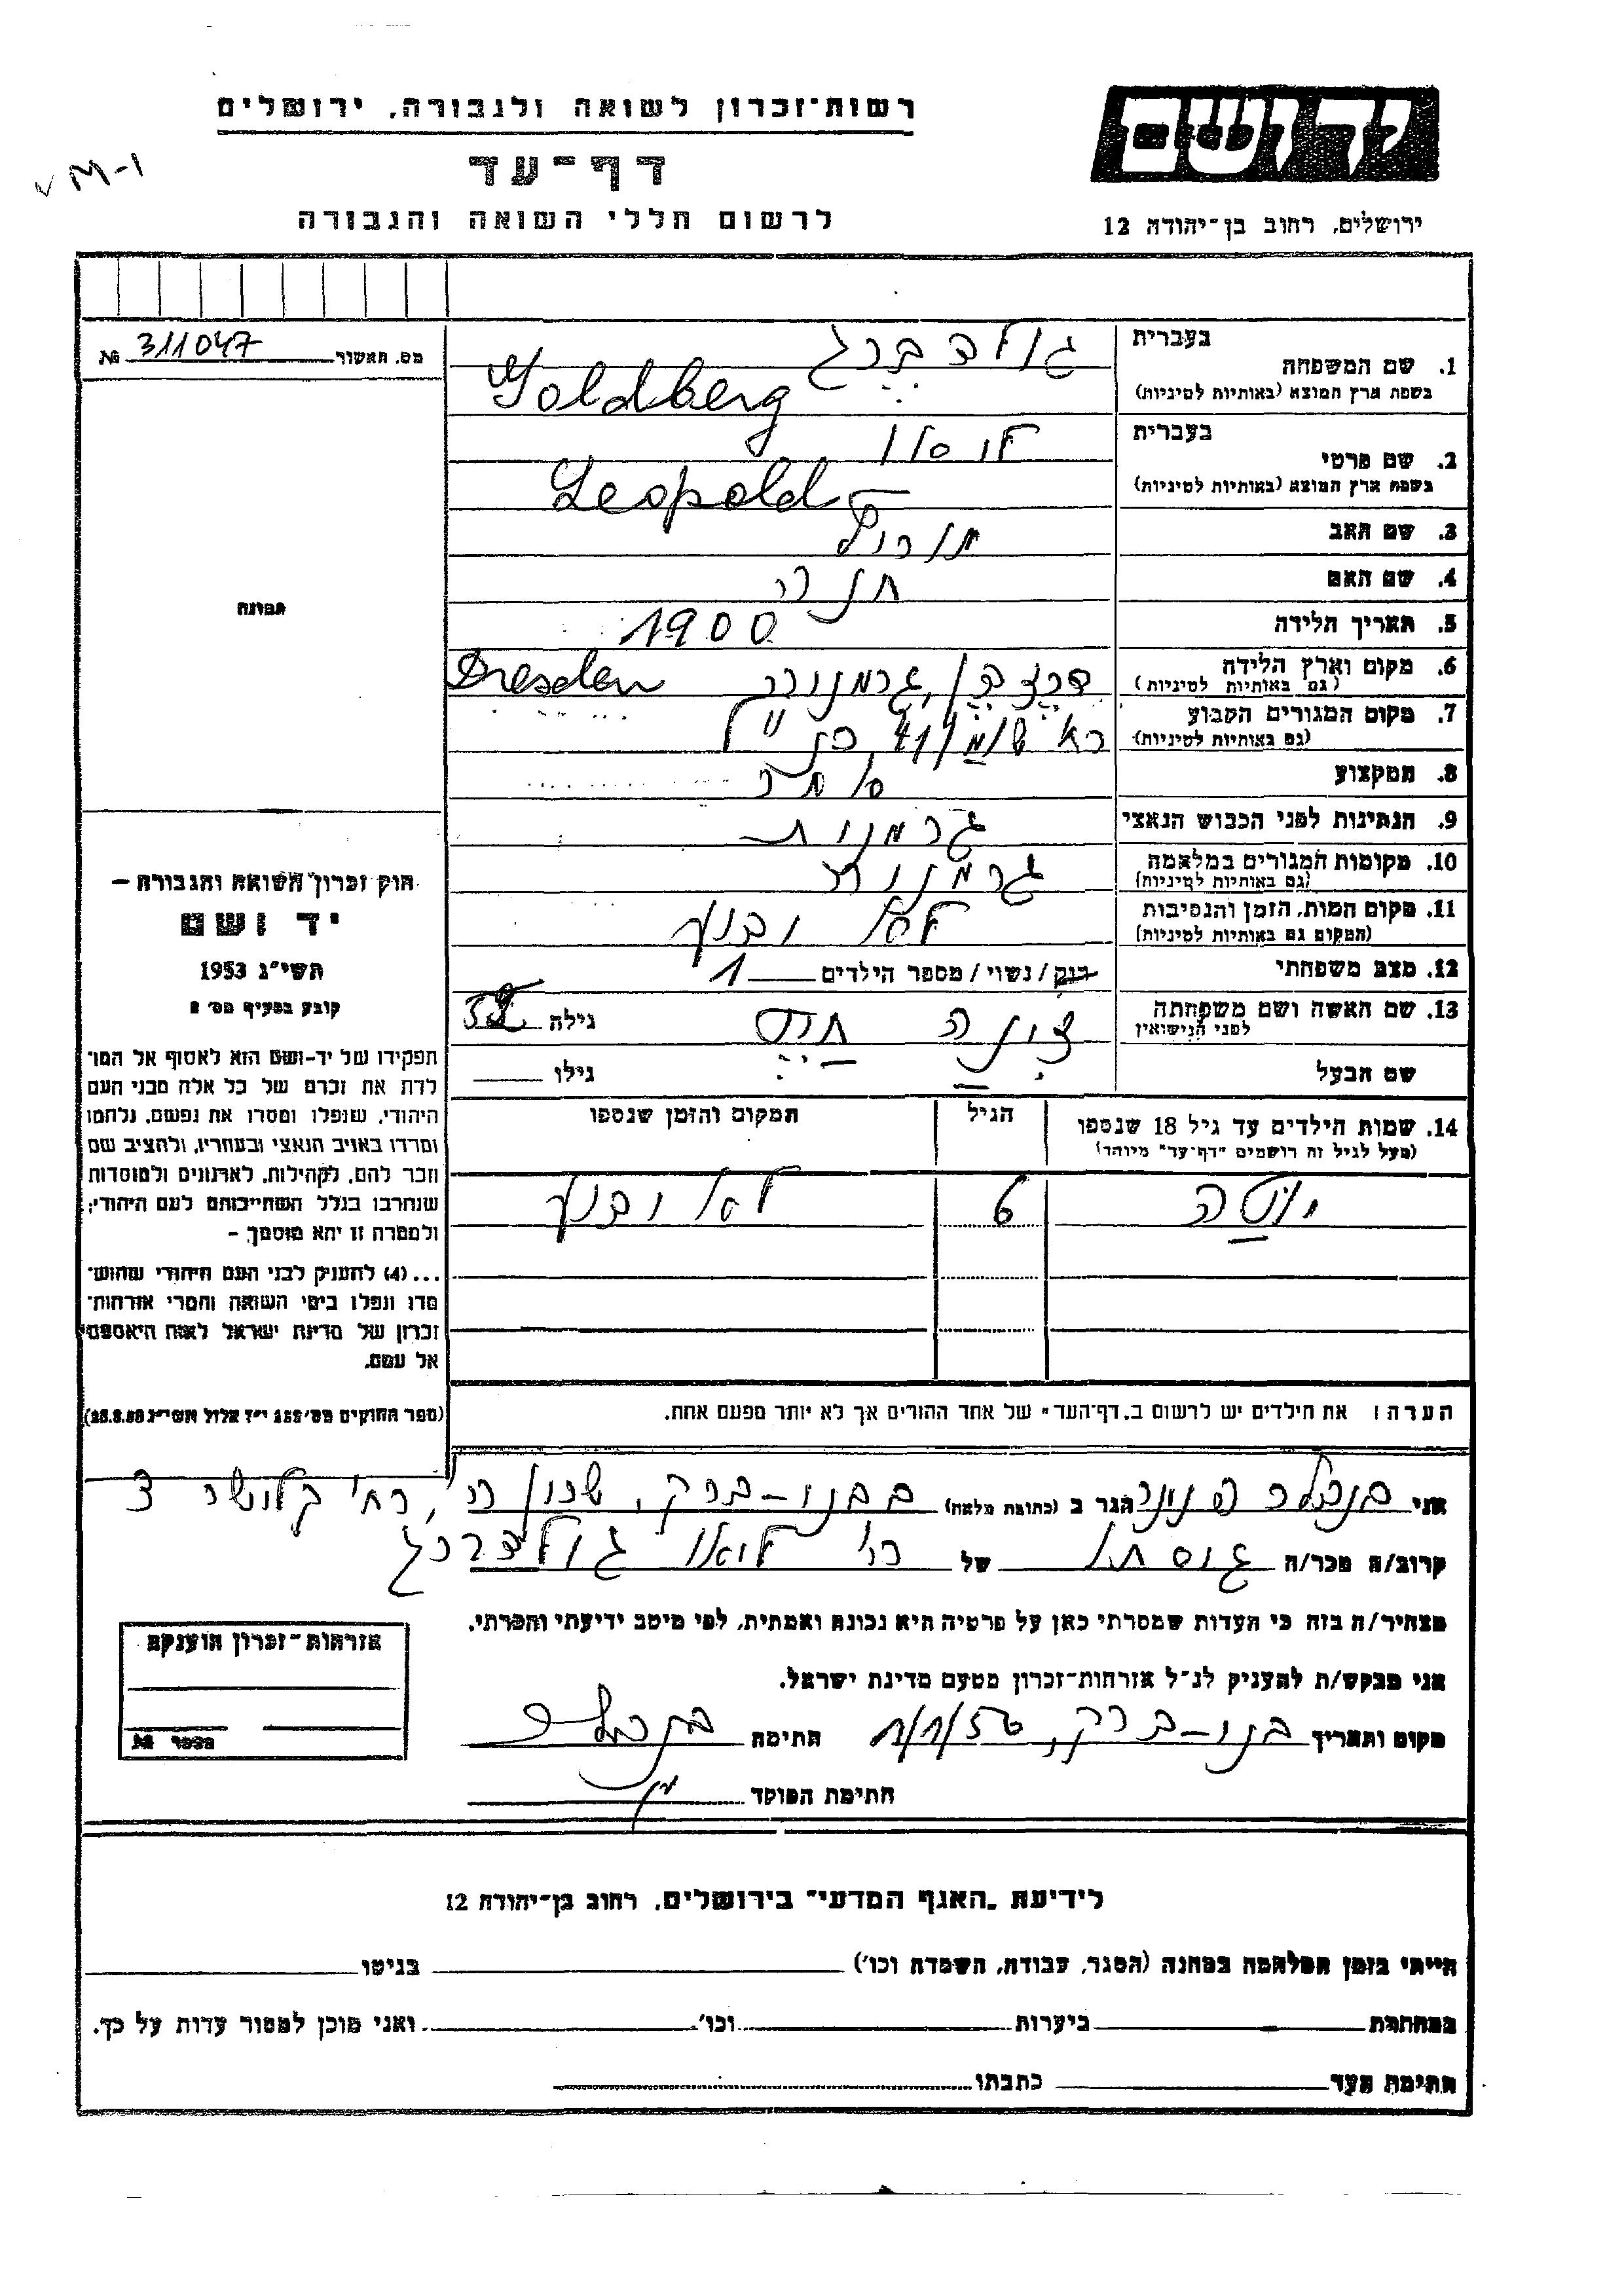 יד ושם
רשות-זכרון לשואה ולגבורה, ירושלים
דף-עד
לרשום חללי השואה והגבורה
ירושלים, רחוב בן-יהודה 12
M-1
מס. האשור 311047 №
תמונה
1. שם המשפחה בעברית גולדברג
בשפת ארץ המוצא (באותיות לטיניות) Goldberg
2. שם פרטי בעברית
בשפת ארץ המוצא (באותיות לטיניות) Leopold
3. שם האב
4. שם האם חנה
5. תאריך הלידה 1900
6. מקום וארץ הלידה גרמניה Dresden
(גם באותיות לטיניות)
7. מקום המגורים הקבוע כנ"ל
(גם באותיות לטיניות)
8. המקצוע סוחר
9. הנתינות לפני הכבוש הנאצי גרמנית
10. מקומות המגורים במלחמה גרמניה
(גם באותיות לטיניות)
11. מקום המות, הזמן והנסיבות לא ידוע
(המקום גם באותיות לטיניות)
12. מצב משפחתי רוק / נשוי / מספר הילדים 1
13. שם האשה ושם משפחתה
לפני הנישואין
גילה
שם הבעל גילו
14. שמות הילדים עד גיל 18 שנספו הגיל המקום והזמן שנספו
(מעל לגיל זה רושמים "דף-עד" מיוחד)
6 לא ידוע
הערה: את הילדים יש לרשום ב"דף-העד" של אחד ההורים אך לא יותר מפעם אחת.
חוק זכרון השואה והגבורה –
יד ושם
תשי"ג 1953
קובע בסעיף מס' 2
תפקידו של יד-ושם הוא לאסוף אל המו-
לדת את זכרם של כל אלה מבני העם
היהודי, שנפלו ומסרו את נפשם, נלחמו
ומרדו באויב הנאצי ובעוזריו, ולהציב שם
וזכר להם, לקהילות, לארגונים ולמוסדות
שנחרבו בגלל השתייכותם לעם היהודי;
ולמטרה זו יהא מוסמך –
...(4) להעניק לבני העם היהודי שהוש-
מדו ונפלו בימי השואה והמרי אזרחות-
זכרון של מדינת ישראל לאות היאספם
אל עמם.
(ספר החוקים מס' 132 י"ז אלול תשי"ג 28.8.53)
אני הגר ב (כתובת מלאה) בבני-ברק, שכון
קרוב/ה מכר/ה גיסתו של גולדברג
מצהיר/ה בזה כי העדות שמסרתי כאן על פרטיה היא נכונה ואמתית, לפי מיטב ידיעתי והכרתי.
אני מבקש/ת להעניק לנ"ל אזרחות-זכרון מטעם מדינת ישראל.
מקום ותאריך בני-ברק, 1/1/56 חתימה
חתימת הפוקד
אזרחות-זכרון הוענקה
מספר №
לידיעת "האגף המדעי" בירושלים, רחוב בן-יהודה 12
הייתי בזמן המלחמה במחנה (הסגר, עבודה, השמדה וכו') בגיטו
במחתרת ביערות וכו' ואני מוכן למסור עדות על כך.
חתימת העד כתבתו